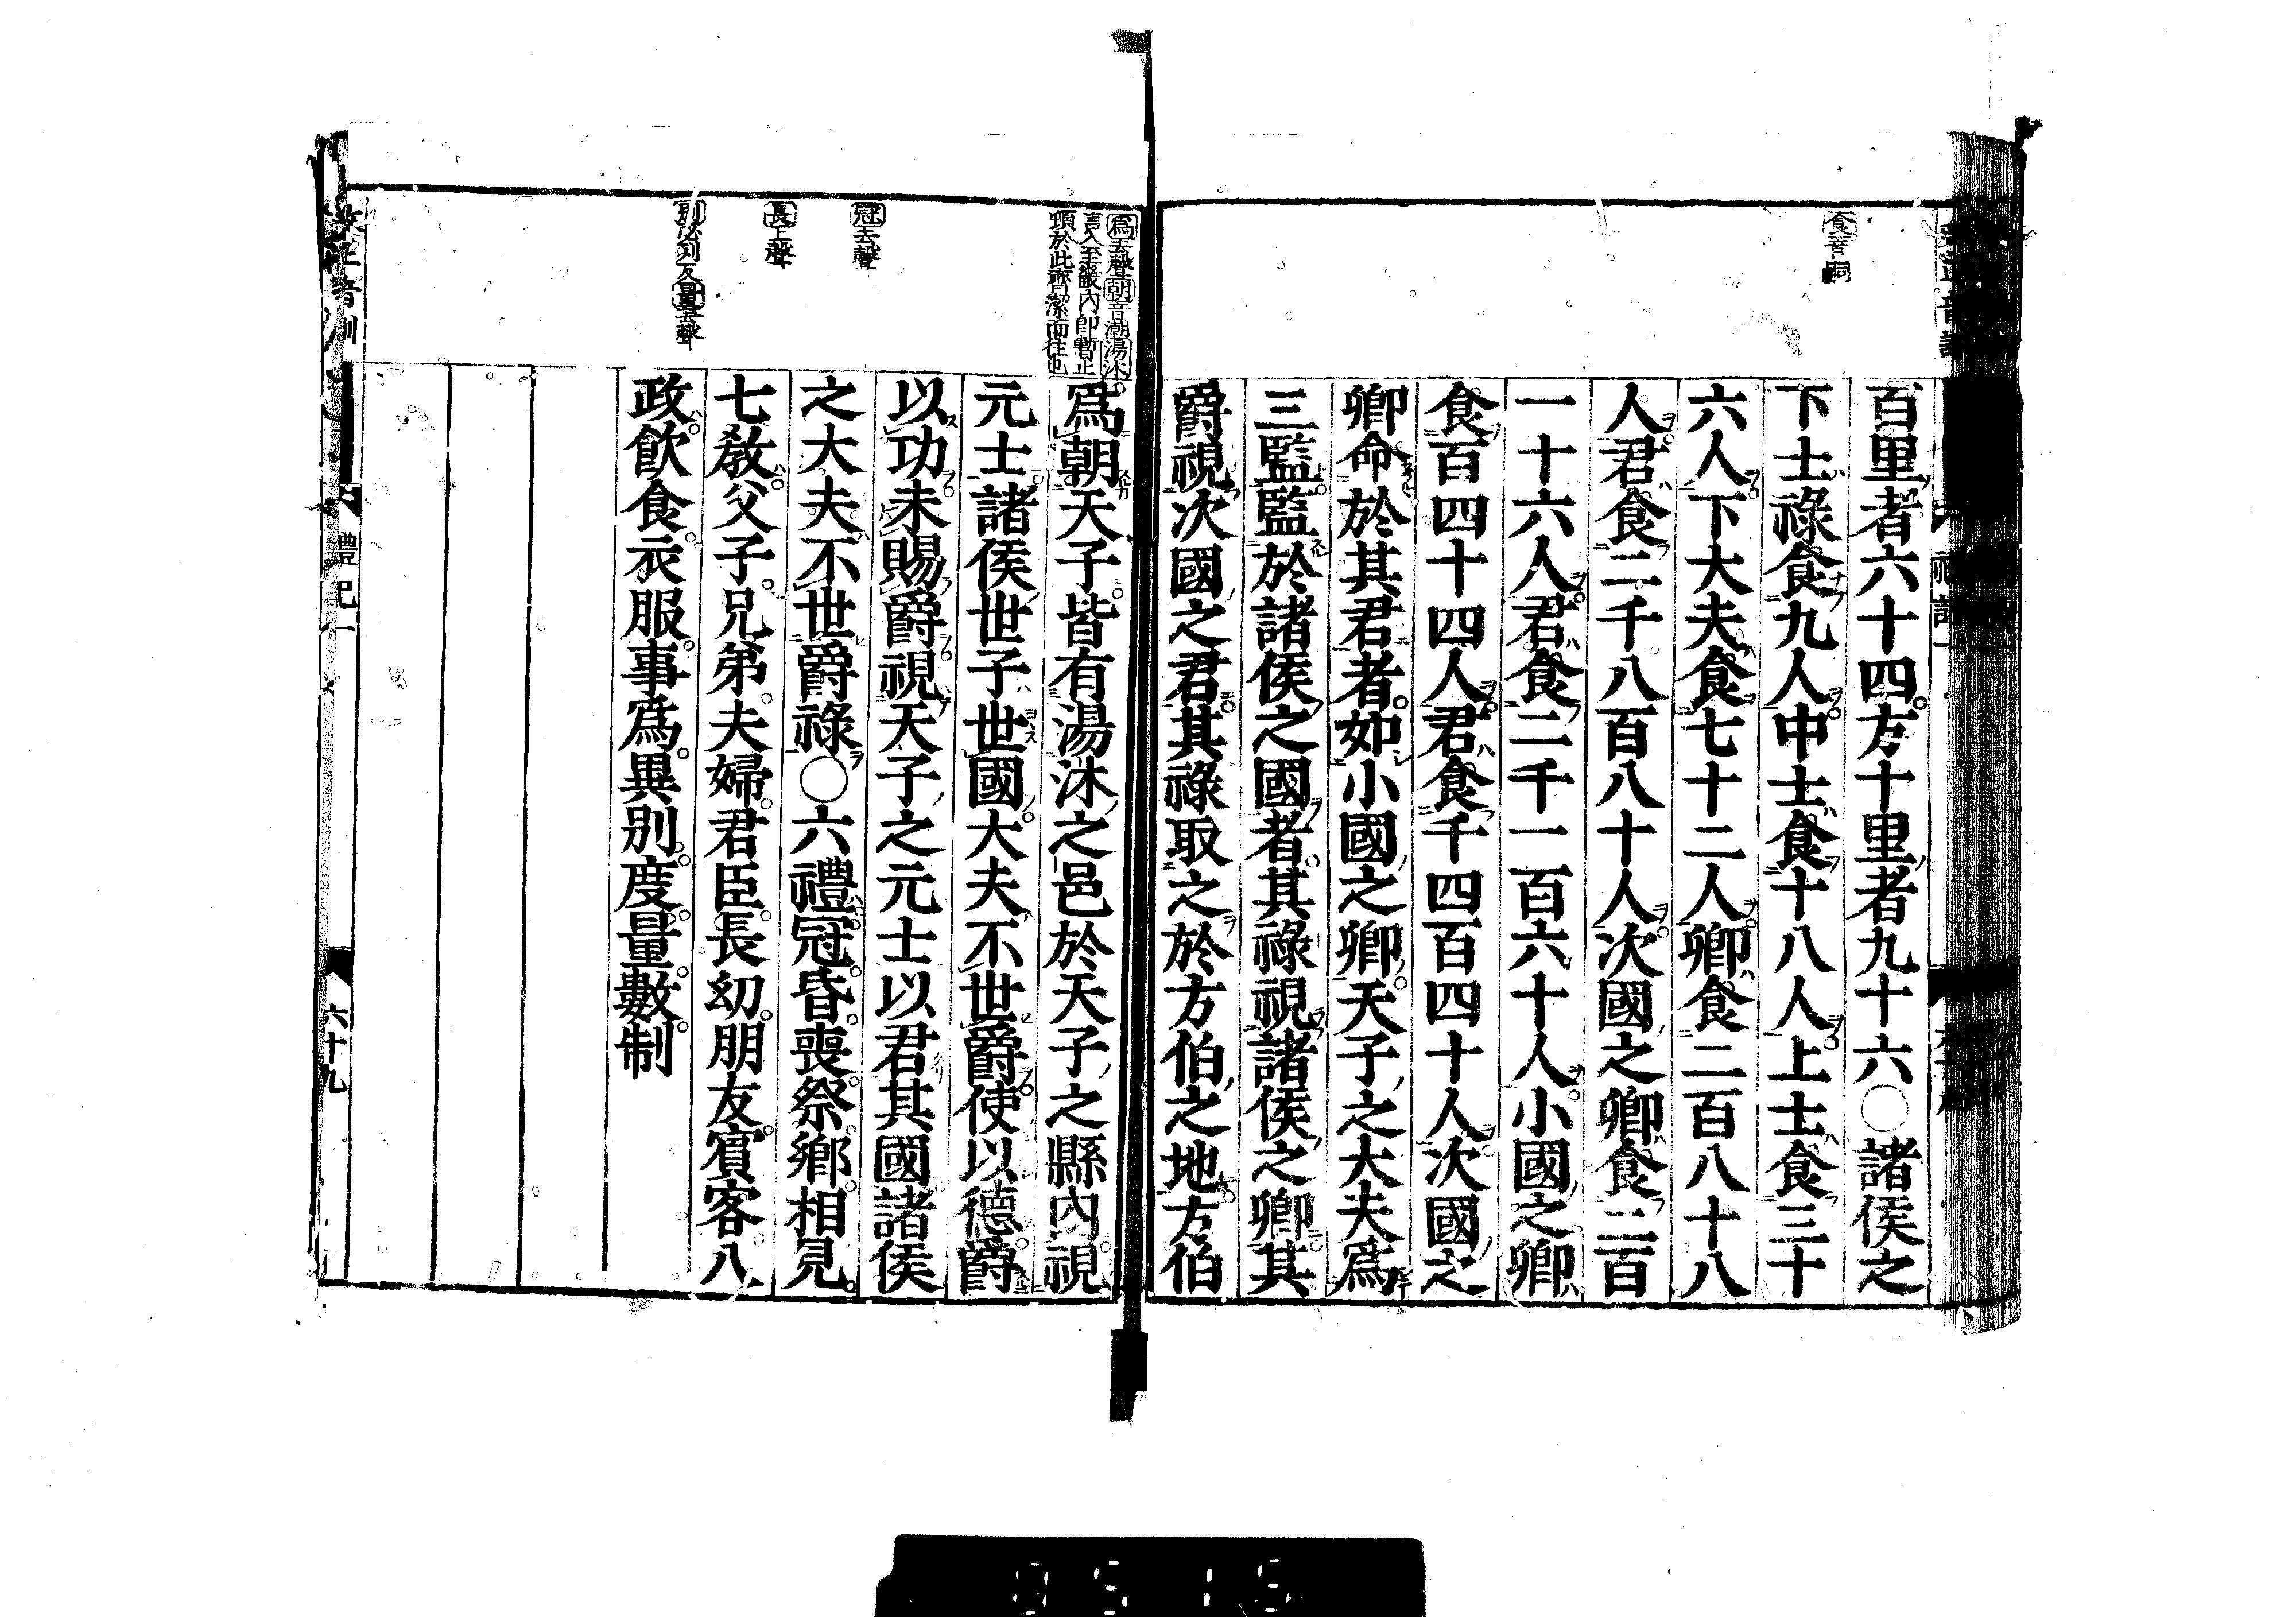 食音嗣
百里者六十四方十里者九十六○諸侯之
下士祿食九人中士食十八人上士食三十
六人下大夫食七十二人卿食二百八十八
人君食二千八百八十人次國之卿食二百
一十六人君食二千一百六十人小國之卿
食百四十四人君食千四百四十人次國之
卿命於其君者如小國之卿天子之大夫爲
三監監於諸侯之國者其祿視諸侯之卿其
爵視次國之君其祿取之於方伯之地方伯
爲去聲朝音潮湯沐
言入至畿內卽暫止
頓於此齊潔而往也
冠去聲
長上聲
別必列反量去聲
爲朝天子皆有湯沐之邑於天子之縣內視
元士諸侯世子世國大夫不世爵使以德爵
以功未賜爵視天子之元士以君其國諸侯
之大夫不世爵祿○六禮冠昏喪祭鄉相見
七敎父子兄弟夫婦君臣長幼朋友賓客八
政飮食衣服事爲異別度量數制
禮記一
六十九
0515